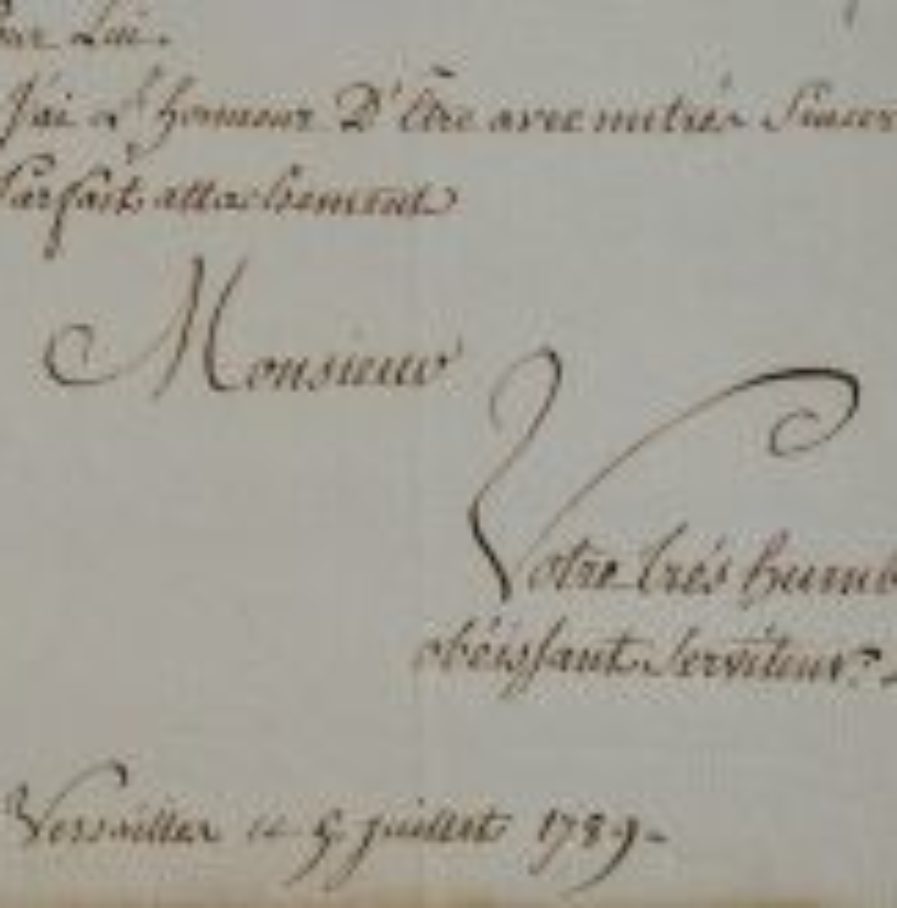 Lui.
J'ai L'honneur D'être avec un très Sincer
Parfait attachement
Monsieur
Votre très humb
obéissant Serviteur
Versailles le 9 juillet 1789